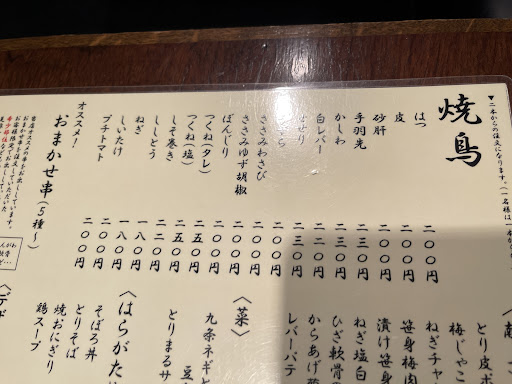 ▼二本からの注文になります。(一名様は一本か
焼鳥
はつ
皮
砂肝
手羽先
かしわ
白レバー
せり
ささみわさび
ささみゆず胡椒
ぼんじり
つくね(タレ)
つくね(塩)
しそ巻き
ししとう
ねぎ
しいたけ
プチトマト
二〇〇円
二〇〇円
二〇〇円
二三〇円
二三〇円
二二〇円
二三〇円
二〇〇円
二〇〇円
二〇〇円
二〇〇円
二五〇円
二五〇円
二二〇円
一八〇円
一八〇円
二〇〇円
オススメ!
おまかせ串(5種〜)
当店オススメの串をお出ししています。
とり皮ポ
梅じゃこ
ねぎチャ
笹身梅肉
漬け笹身
ねぎ塩白
ひざ軟骨の
からあげ
レバーパテ
〈菜〉
九条ネギと
とりまるサ
〈はらがた
そぼろ丼
とりそば
焼おにぎり
鶏スープ
〈デザ